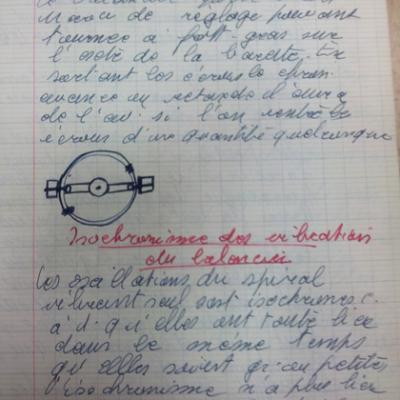 de réglage peuvent
tourner à frott gras sur
l'axe de la
sortant les écrous le chron.
avance ou retarde
de l'av. si l'on rentre les
écrous d'une quantité quelconque
Isochronisme des vibrations
du balancier
Les oscillations du spiral
vibrant seul sont isochrones c.
à d. qu'elles ont toute lieu
dans le même temps
qu'elles soient gr. ou petites
l'isochronisme n'a plus lieu